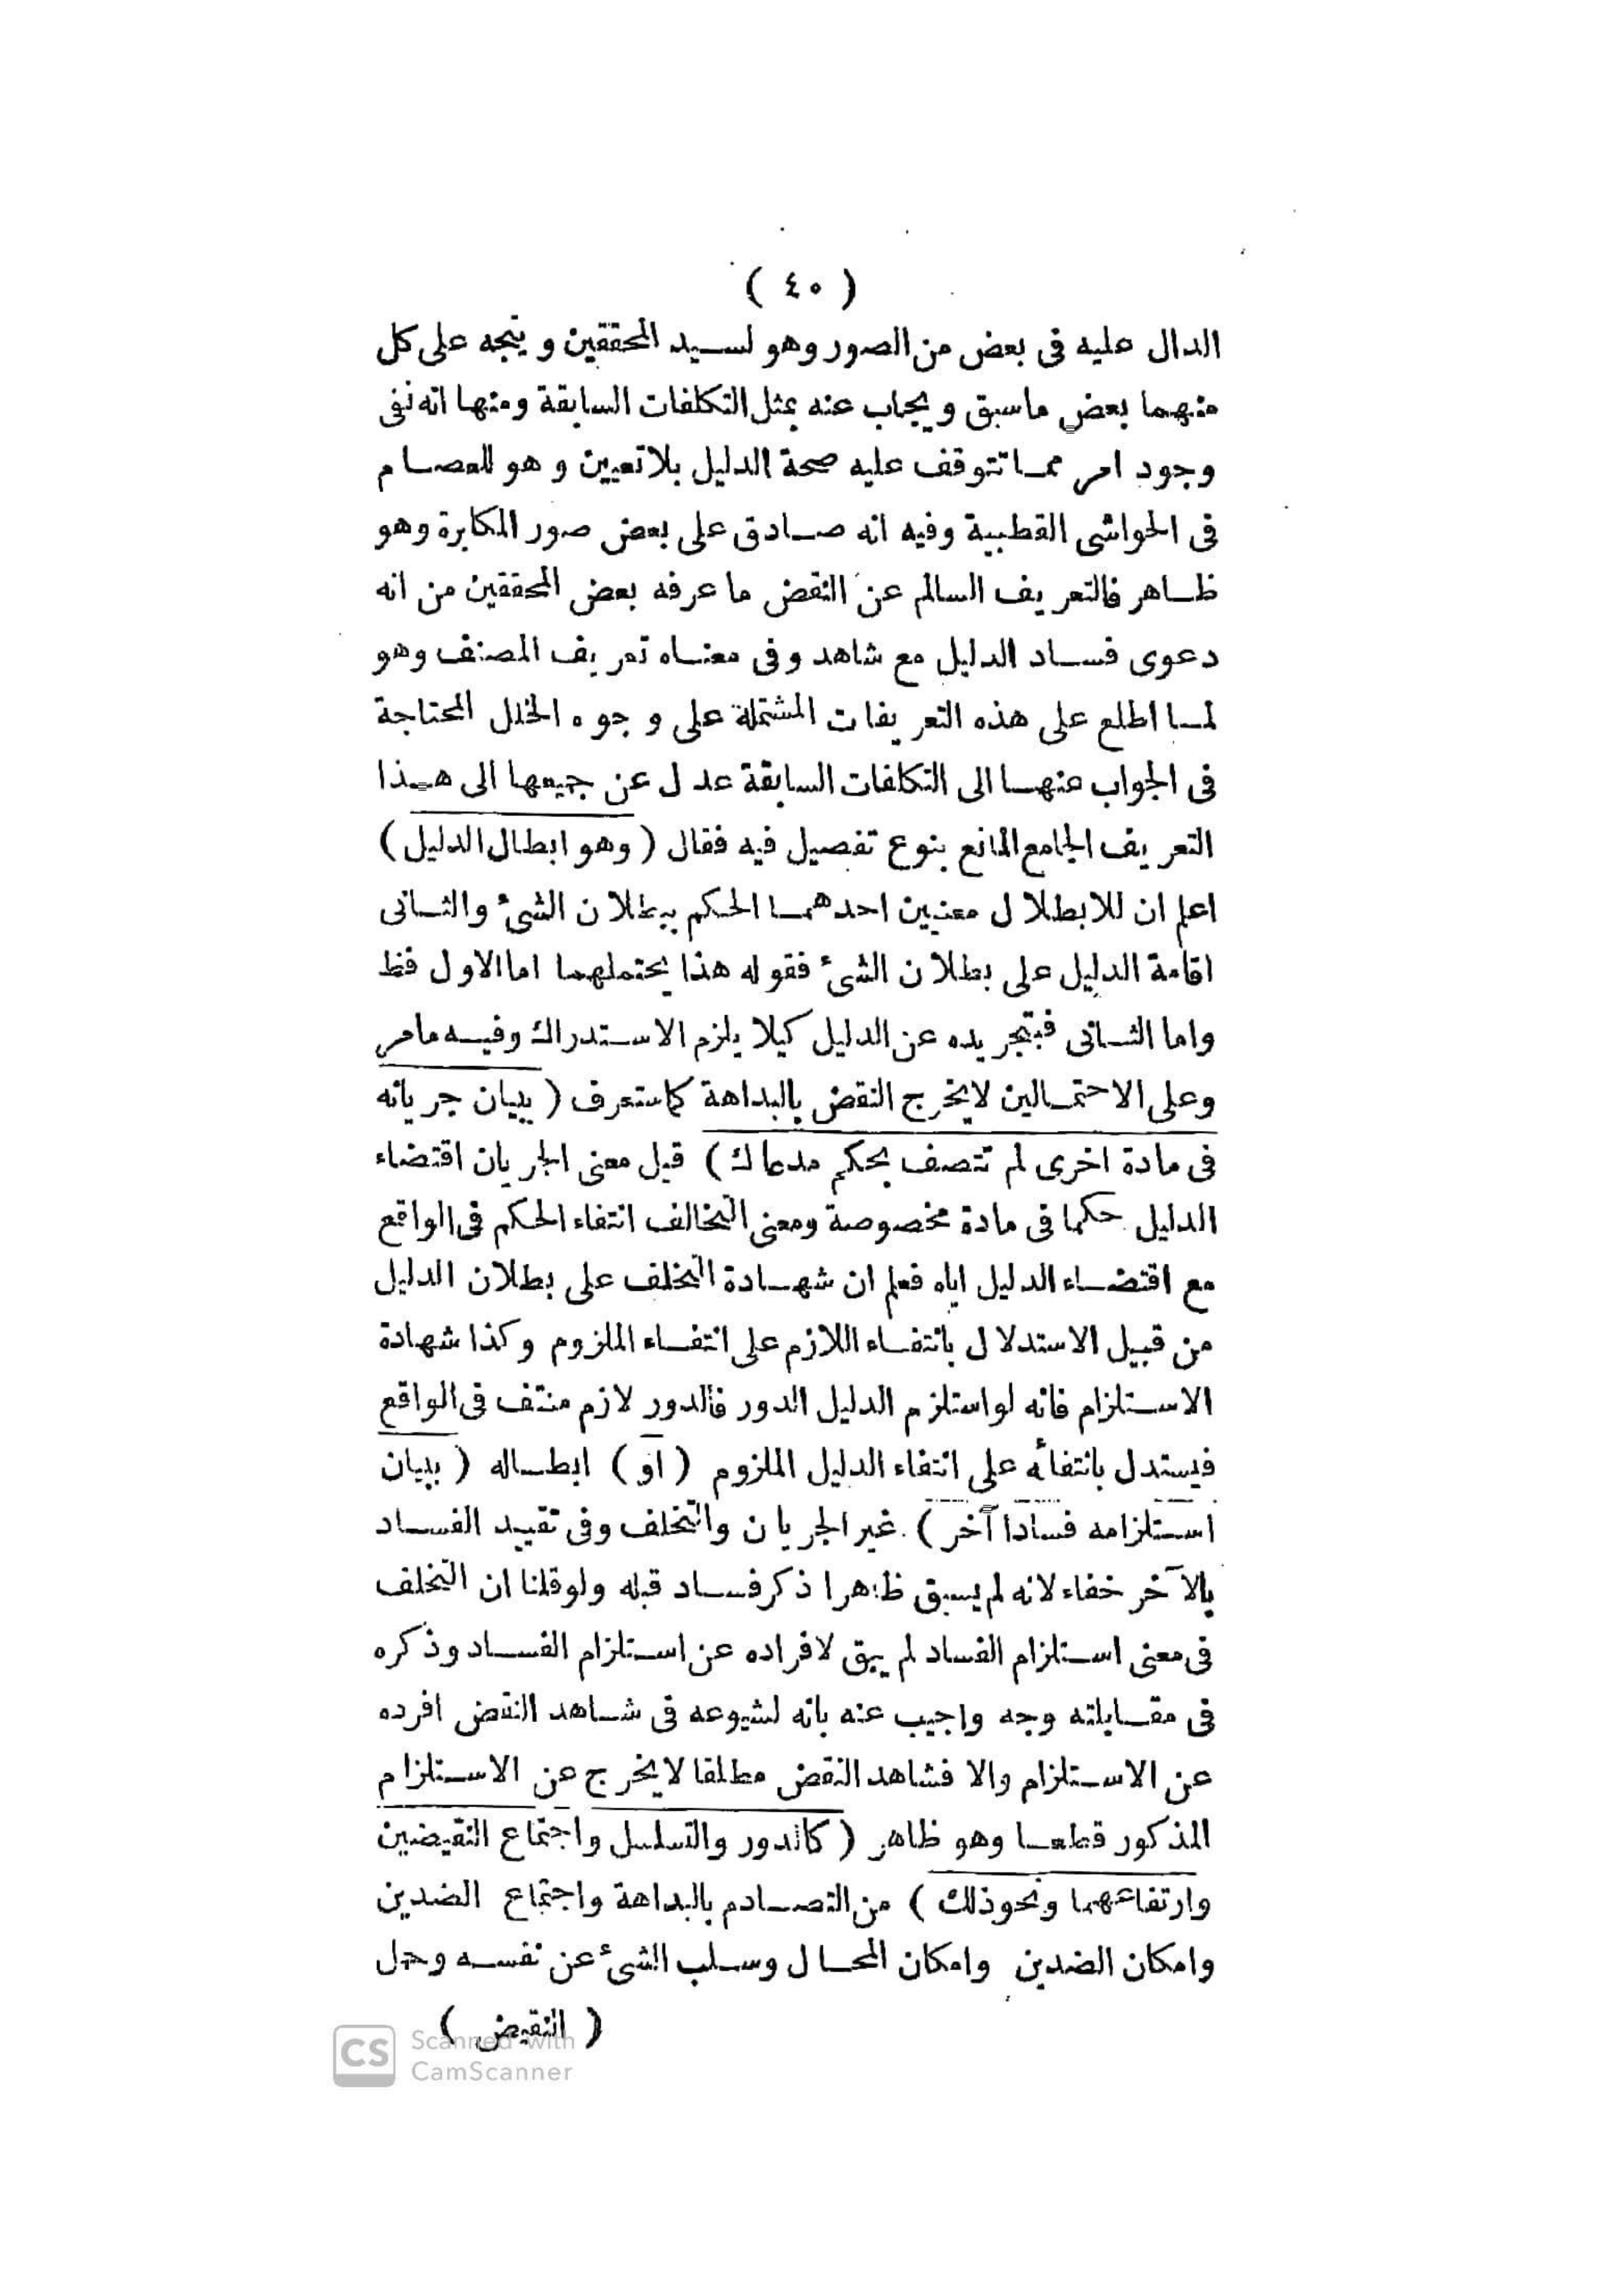 ( ٤٠ )
الدال عليه فى بعض من الصور وهو لسيد المحققين و يتجه على كل
منهما بعض ماسبق و يجاب عنه بمثل التكلفات السابقة ومنها انه نفى
وجود امر مما تتوقف عليه صحة الدليل بلا تعيين و هو للعصام
فى الحواشى القطبية وفيه انه صادق على بعض صور المكابرة وهو
ظاهر فالتعر يف السالم عن النقض ما عرفه بعض المحققين من انه
دعوى فساد الدليل مع شاهد وفى معناه تعر يف المصنف وهو
لما اطلع على هذه التعر يفات المشتملة على و جوه الخلل المحتاجة
فى الجواب عنها الى التكلفات السابقة عدل عن جميعها الى هذا
التعر يف الجامع المانع بنوع تفصيل فيه فقال ( وهو ابطال الدليل )
اعلم ان للابطال معنيين احدهما الحكم ببطلان الشئ والثانى
اقامة الدليل على بطلان الشئ فقوله هذا يحتملهما اما الاول فظ
واما الثانى فبتجر يده عن الدليل كيلا يلزم الاستدراك وفيه مامر
وعلى الاحتمالين لايخرج النقض بالبداهة كماستعرف ( ببيان جر يانه
فى مادة اخرى لم تتصف بحكم مدعاك ) قيل معنى الجر يان اقتضاء
الدليل حكما فى مادة مخصوصة ومعنى التخالف انتفاء الحكم فى الواقع
مع اقتضاء الدليل اياه فعلم ان شهادة التخلف على بطلان الدليل
من قبيل الاستدلال بانتفاء اللازم على انتفاء الملزوم وكذا شهادة
الاستلزام فانه لواستلزم الدليل الدور فالدور لازم منتف فى الواقع
فيستدل بانتفائه على انتفاء الدليل الملزوم ( او ) ابطاله ( ببيان
استلزامه فسادا آخر ) غير الجر يان والتخلف وفى تقييد الفساد
بالآخر خفاء لانه لم يسبق ظاهرا ذكر فساد قبله ولوقلنا ان التخلف
فى معنى استلزام الفساد لم يبق لافراده عن استلزام الفساد وذكره
فى مقابلته وجه واجيب عنه بانه لشيوعه فى شاهد النقض افرده
عن الاستلزام والا فشاهد النقض مطلقا لايخرج عن الاستلزام
المذكور قطعا وهو ظاهر ( كالدور والتسلسل واجتماع النقيضين
وارتفاعهما ونحوذلك ) من التصادم بالبداهة واجتماع الضدين
وامكان الضدين وامكان المحال وسلب الشئ عن نفسه وحمل
( النقيض )
CS Scanned with
CamScanner